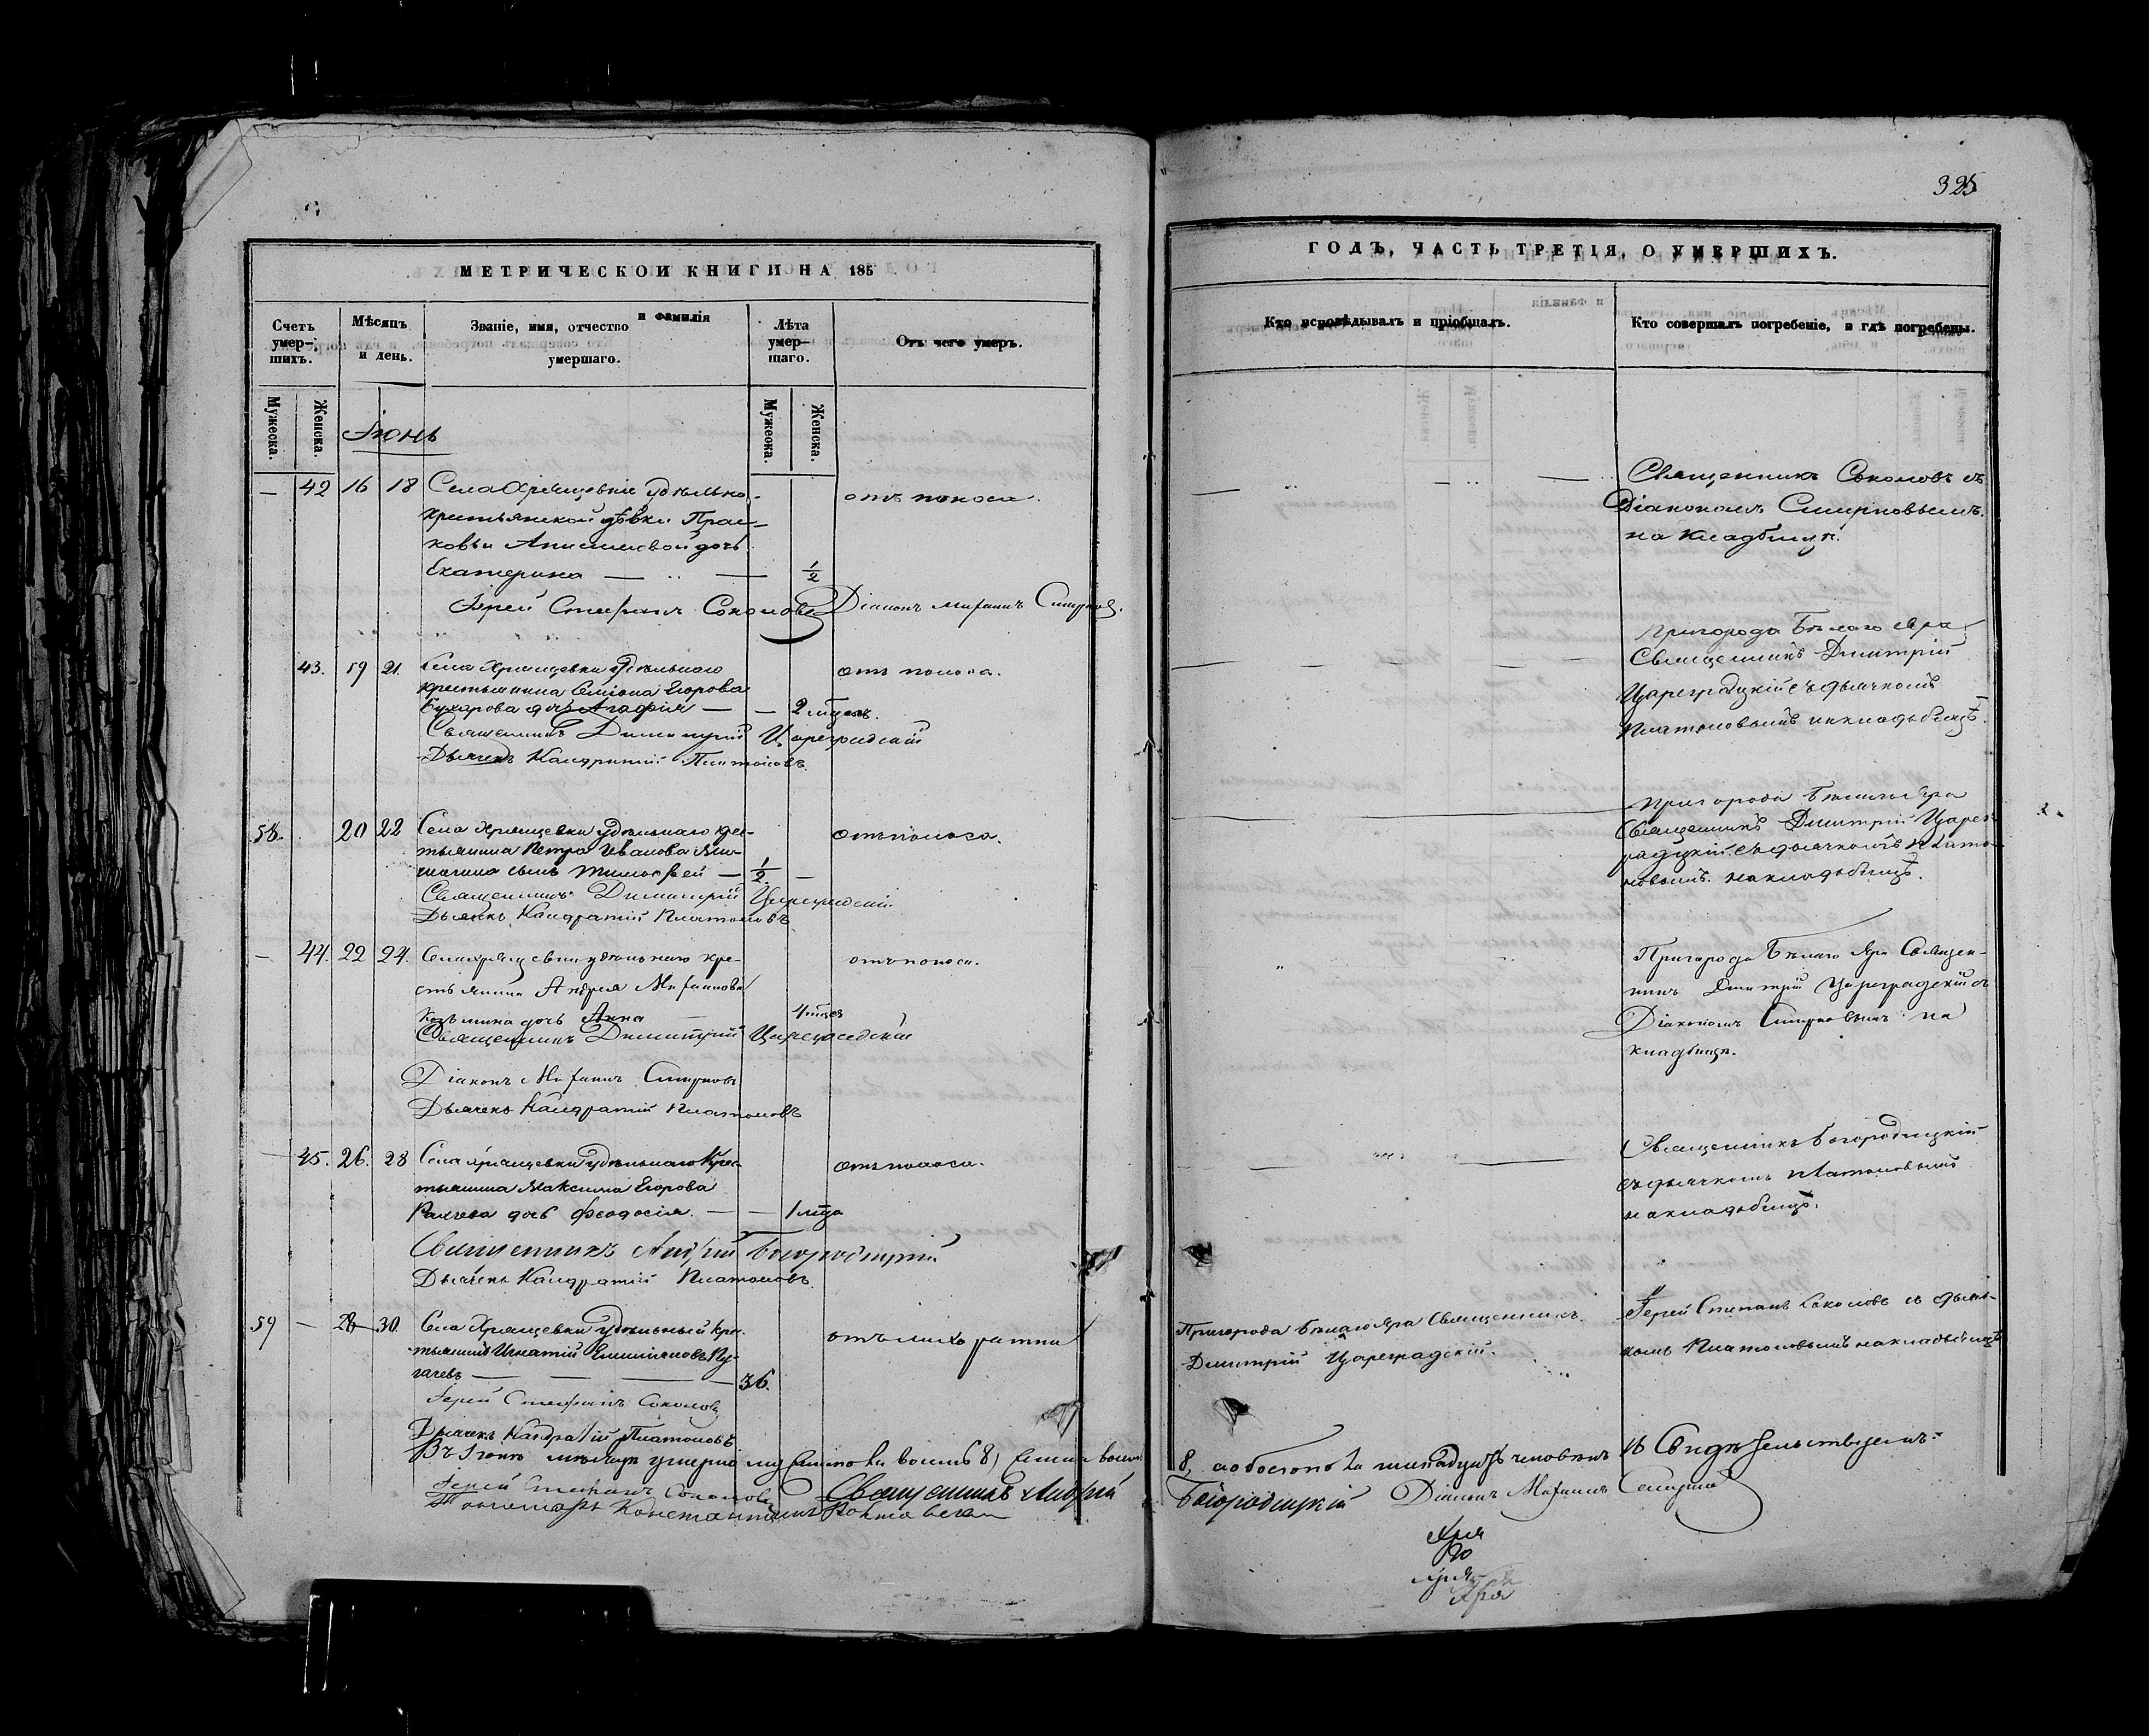 325
МЕТРИЧЕСКОЙ КНИГИ НА 185
ГОДЪ, ЧАСТЬ ТРЕТІЯ, О УМЕРШИХЪ.
Счетъ умер-шихъ.
Мѣсяцъ и день.
Званіе, имя, отчество и фамилія умершаго.
Лѣта умер-шаго.
Отъ чего умеръ.
Кто исповѣдывалъ и пріобщалъ.
Кто совершалъ погребеніе, и гдѣ погребены.
Мужеска.
Женска.
Мужеска.
Женска.
Іюнь
— 42 16 18 Села Хрящевки удѣльно-
крестьянской дѣвки Прас-
ковьи Анисимовой дочь
Екатерина — 1/2
отъ поноса.
Священникъ Соколовъ съ
Діакономъ Смирновымъ.
на кладбищѣ.
Іерей Стефанъ Соколовъ Діаконъ Михаилъ Смирновъ.
43. 19 21. Села Хрящевки удѣльнаго
крестьянина Семіона Егорова
дочь Агафія — — 2 мѣсяц.
отъ поноса.
Пригорода Бѣлаго Яра
Священникъ Димитрій
Цареградскій съ дьячкомъ
Платоновымъ на кладбищѣ.
Священникъ Димитрій Цареградскій
Дьячекъ Кандратій Платоновъ.
58. 20 22 Села Хрящевки удѣльнаго крес-
тьянина Петра Иванова
сынъ Тимофей — 1/2 —
отъ поноса.
Пригорода Бѣлаго Яра
Священникъ Димитрій Царег-
радскій съ дьячкомъ Плато-
новымъ. на кладбищѣ.
Священникъ Димитрій Цареградскій
Дьячекъ Кандратій Платоновъ
— 44. 22 24. Села Хрящевки удѣльнаго кре-
стьянина Андрея Михаилова
Козьмина дочь Анна — 4 мѣсяц
отъ поноса.
Пригорода Бѣлаго Яра Священ-
никъ Дмитрій Цареградскій съ
Діакономъ Смирновымъ на
кладбищѣ.
Священникъ Димитрій Цареградскій
Діаконъ Михаилъ Смирновъ
Дьячекъ Кандратій Платоновъ
45. 26. 28 Села Хрящевки удѣльнаго крес-
тьянина Максима Егорова
дочь Феодосія. — — 1 года
отъ поноса.
Священникъ Богородицкій
съ дьячкомъ Платоновымъ
на кладбищѣ.
Священникъ Андрей Богородицкій
Дьячекъ Кандратій Платоновъ.
59 — 28 30 Села Хрящевки удѣльный кре-
стьянинъ Игнатій Емиліяновъ Пу-
гачевъ — — — 36.
отъ лихоратки
Пригорода Бѣлаго Яра Священникъ
Димитрій Цареградскій.
Іерей Стефанъ Соколовъ съ дьяч-
комъ Платоновымъ на кладбищѣ
Іерей Стефанъ Соколовъ
Дьячекъ Кандратій Платоновъ
Въ Іюнѣ мѣсяцѣ умерло восемь 8)
8, а обоего пола человѣкъ 16 Свидѣтельствуемъ:
Іерей Стефанъ Соколовъ Священникъ Андрей
Богородицкій Діаконъ Михаилъ Смирновъ
Пономарь Константинъ